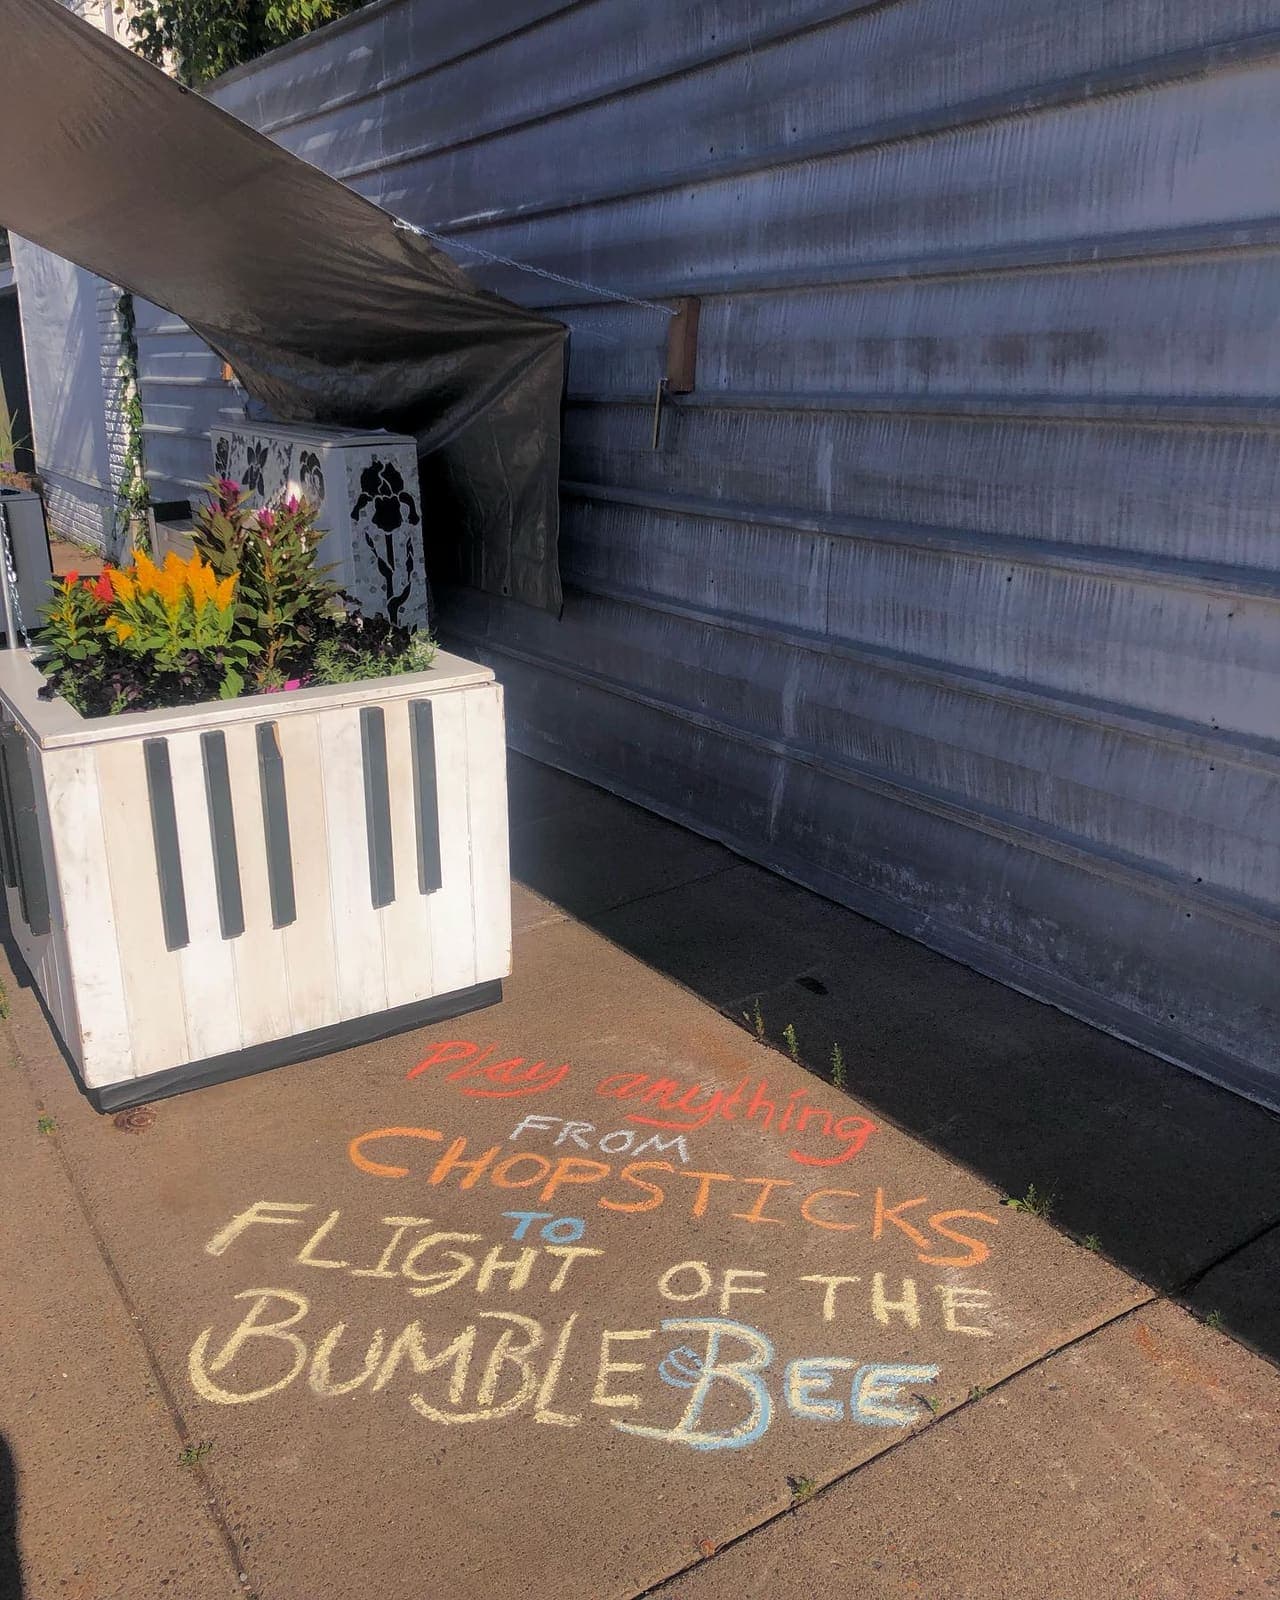 Play anything
FROM
CHOPSTICKS
TO
FLIGHT OF THE
BUMBLEBEE